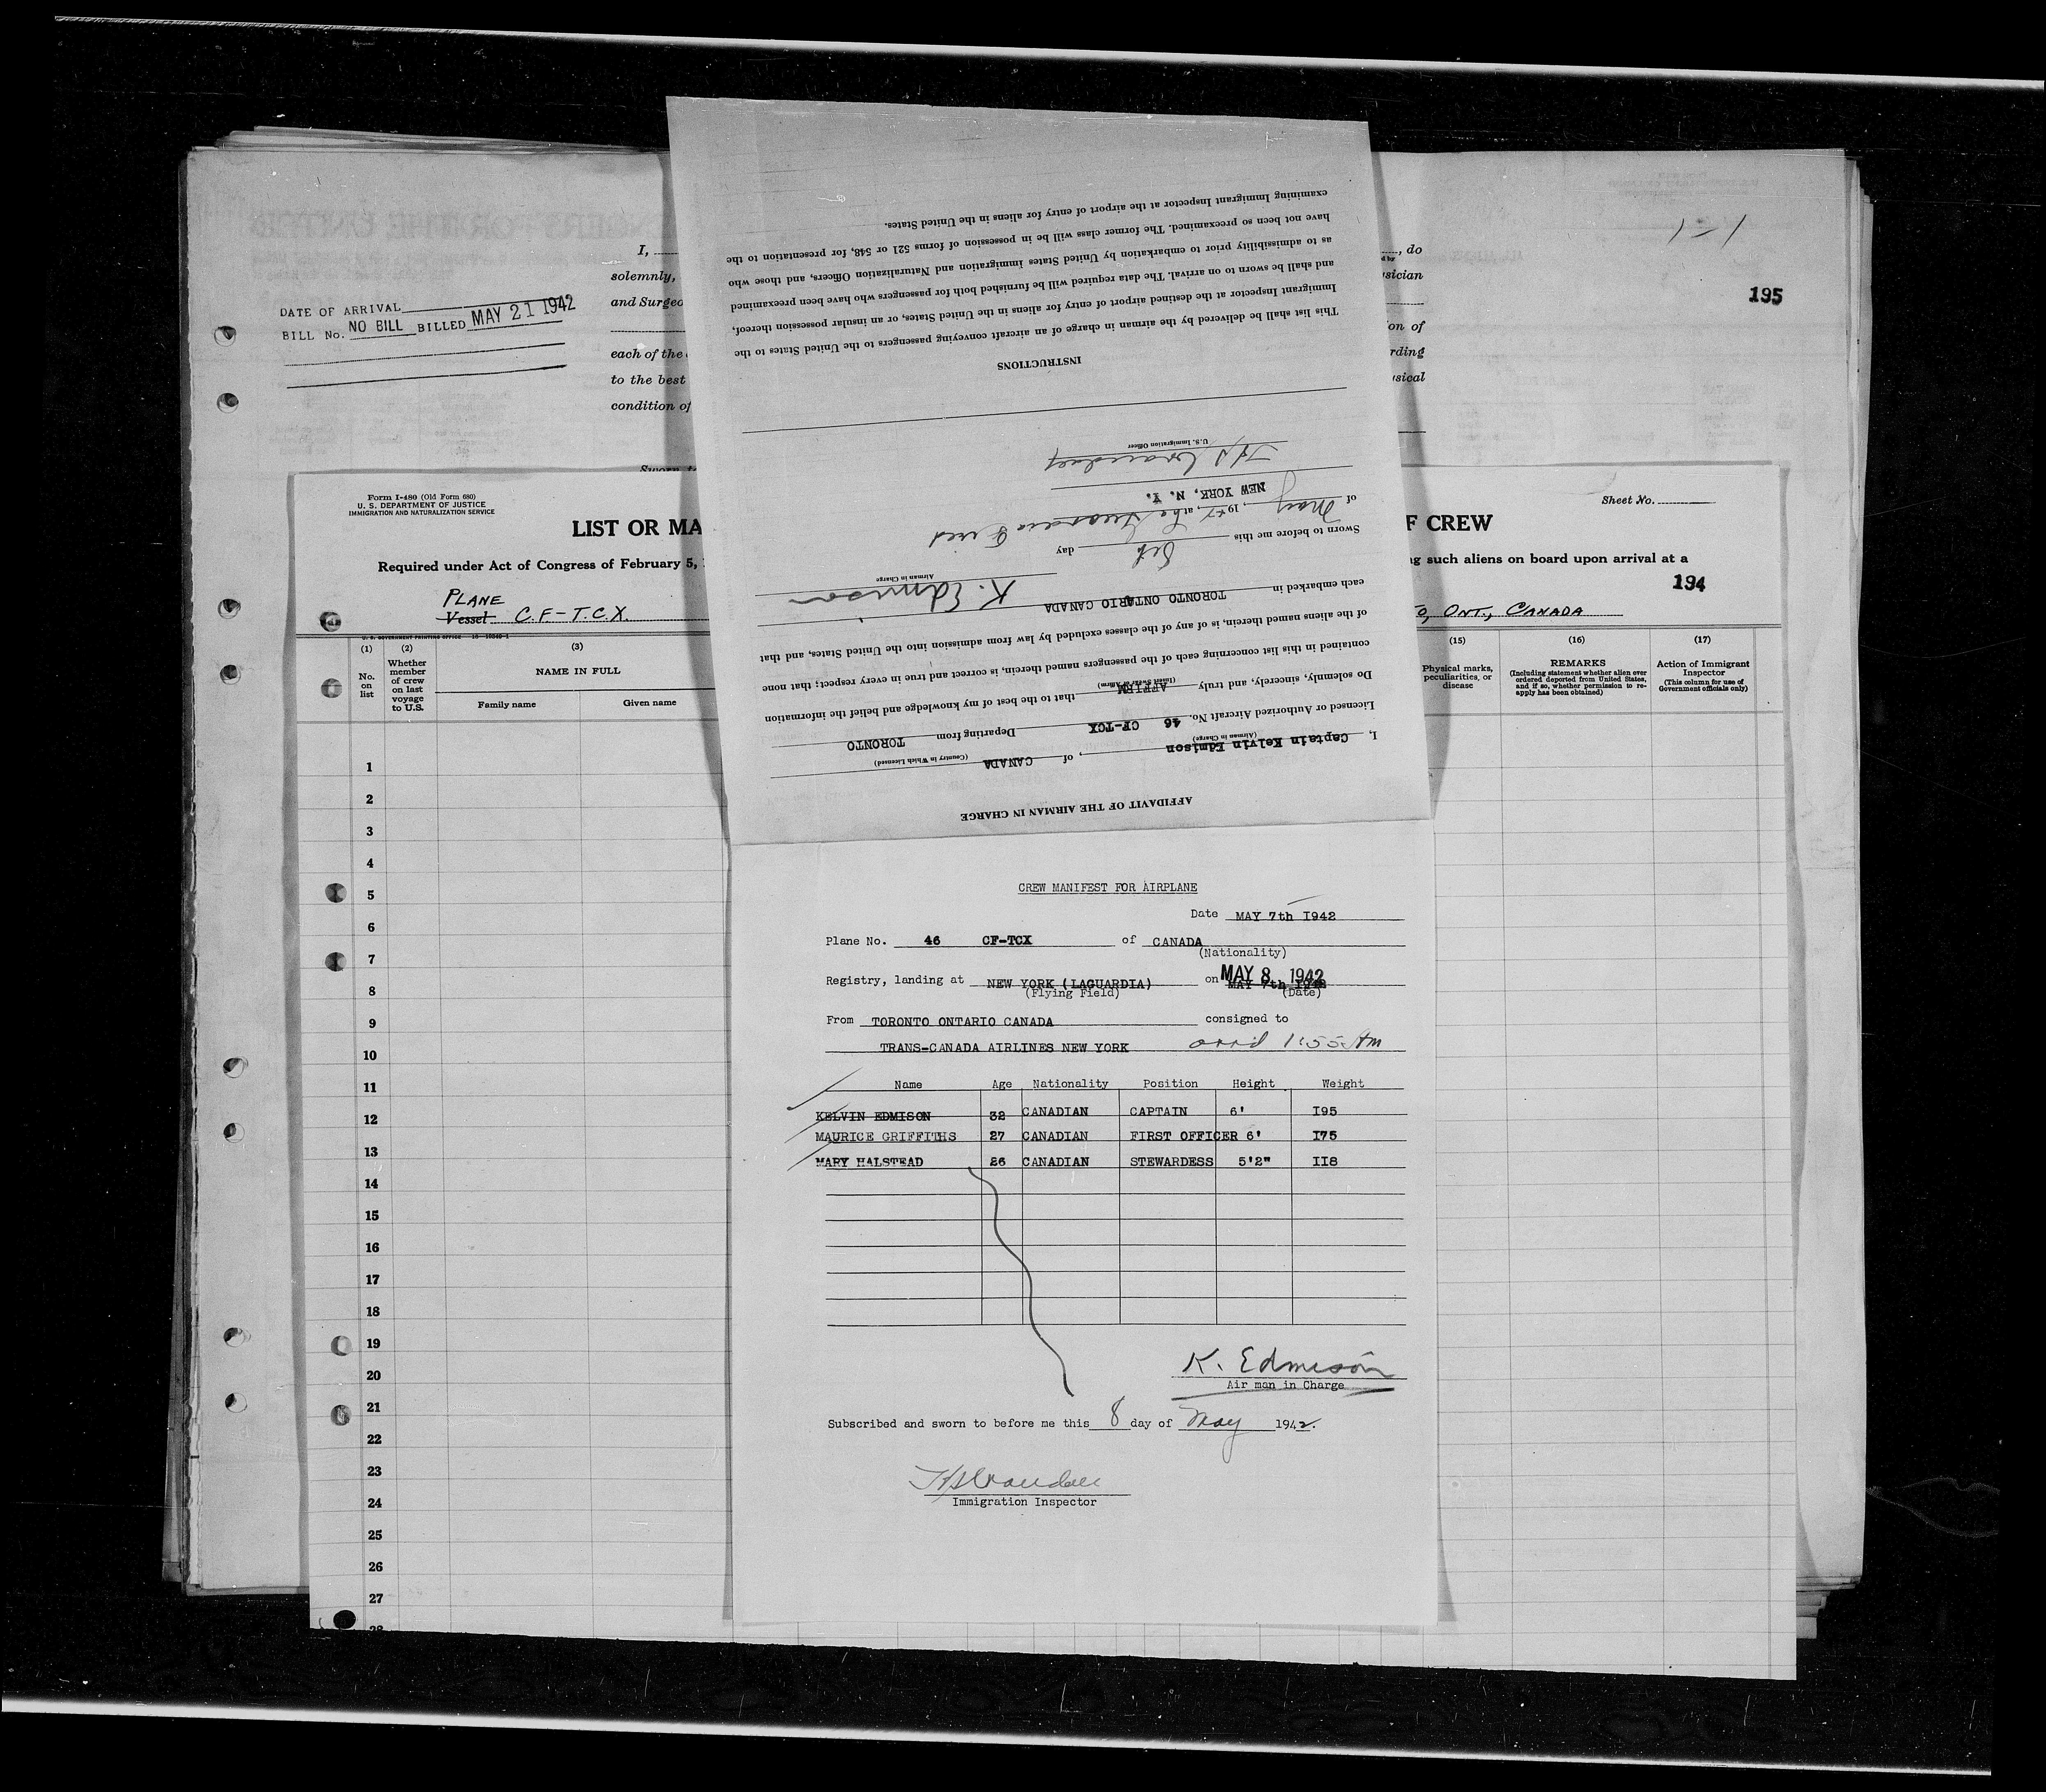 195
DATE OF ARRIVAL
BILL No. NO BILL BILLED MAY 21 1942
I,
solemnly,
and Surgeo
each of the
to the best
condition of
, do
sician
on of
rding
sical
Form I-480 (Old Form 680)
U. S. DEPARTMENT OF JUSTICE
IMMIGRATION AND NATURALIZATION SERVICE
LIST OR MA
F CREW
Sheet No.
Required under Act of Congress of February 5,
g such aliens on board upon arrival at a
194
PLANE
Vessel C.F-T.C.X.
O, ONT., CANADA
U. S. GOVERNMENT PRINTING OFFICE
(1) (2) (3) (15) (16) (17)
No. on list
Whether member of crew on last voyage to U.S.
NAME IN FULL
Family name Given name
Physical marks, peculiarities, or disease
REMARKS
(Including statement whether alien ever ordered deported from United States, and if so, whether permission to reapply has been obtained)
Action of Immigrant Inspector
(This column for use of Government officials only)
1
2
3
4
5
6
7
8
9
10
11
12
13
14
15
16
17
18
19
20
21
22
23
24
25
26
27
28
AFFIDAVIT OF THE AIRMAN IN CHARGE
I, Captain Kelvin Edmison, of CANADA
(Airman in Charge) (Country in Which Licensed)
Licensed or Authorized Aircraft No. 46 CF-TCX Departing from TORONTO
Do solemnly, sincerely, and truly AFFIRM that to the best of my knowledge and belief the information
(Insert Swear or Affirm)
contained in this list concerning each of the passengers named therein, is correct and true in every respect; that none
of the aliens named therein, is of any of the classes excluded by law from admission into the United States, and that
each embarked in TORONTO ONTARIO CANADA
K. Edmison
Airman in Charge
Sworn to before me this 8th day
of May, 19 42, at La Guardia Field
NEW YORK, N. Y.
U.S. Immigration Officer
INSTRUCTIONS
This list shall be delivered by the airman in charge of an aircraft conveying passengers to the United States to the
Immigrant Inspector at the destined airport of entry for aliens in the United States, or an insular possession thereof,
and shall be sworn to on arrival. The data required will be furnished both for passengers who have been preexamined
as to admissibility prior to embarkation by United States Immigration and Naturalization Officers, and those who
have not been so preexamined. The former class will be in possession of forms 521 or 548, for presentation to the
examining Immigrant Inspector at the airport of entry for aliens in the United States.
CREW MANIFEST FOR AIRPLANE
Date MAY 7th I942
Plane No. 46 CF-TCX of CANADA
(Nationality)
Registry, landing at NEW YORK (LAGUARDIA) on MAY 8 1942
MAY 7th I942
(Flying Field) (Date)
From TORONTO ONTARIO CANADA consigned to
TRANS-CANADA AIRLINES NEW YORK arrd 1:55 Am
Name Age Nationality Position Height Weight
KELVIN EDMISON 32 CANADIAN CAPTAIN 6' I95
MAURICE GRIFFITHS 27 CANADIAN FIRST OFFICER 6' I75
MARY HALSTEAD 26 CANADIAN STEWARDESS 5'2" II8
K. Edmison
Air man in Charge
Subscribed and sworn to before me this 8 day of May 1942.
Immigration Inspector